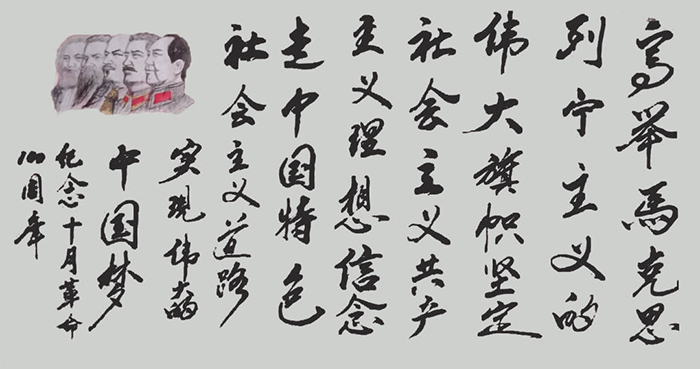 高举马克思
列宁主义的
伟大旗帜坚定
社会主义共产
主义理想信念
走中国特色
社会主义道路
实现伟大的
中国梦
纪念十月革命
100周年